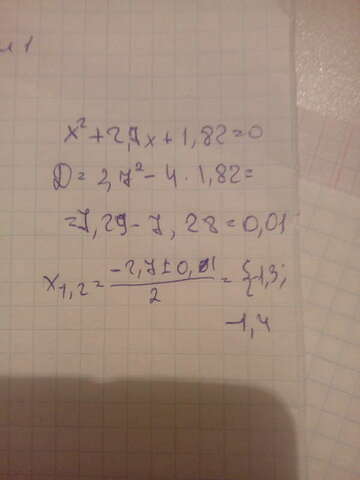 x² + 2,7x + 1,82 = 0
D = 2,7² - 4 · 1,82 =
= 7,29 - 7,28 = 0,01
x₁,₂ = (-2,7 ± 0,1)/2 = {-1,3;
-1,4